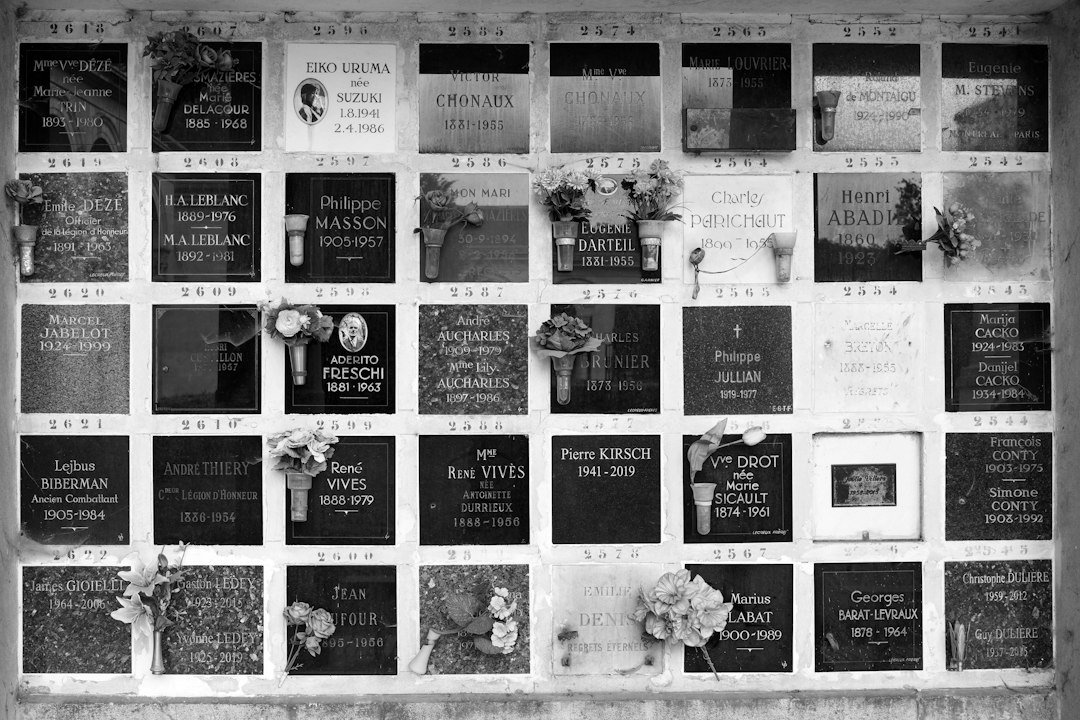 2618 2607 2596 2585 2574 2563 2552 2541
Mme Vve DÉZÉ
née
Marie Jeanne
TRIN
1893-1980
MAZIÈRES
née
Marie
DELACOUR
1885-1968
EIKO URUMA
née
SUZUKI
1.8.1941
2.4.1986
VICTOR
CHONAUX
1881-1955
Mme Vve
CHONAUX
Marie LOUVRIER
1873-1955
Roland
de MONTAIGU
1924-1990
Eugenie
M. STEVENS
MONTREAL PARIS
2619 2608 2597 2586 2575 2564 2553 2542
Emile DEZÉ
Officier
de la Légion d'Honneur
1891-1963
H.A. LEBLANC
1889-1976
M.A. LEBLANC
1892-1981
Philippe
MASSON
1905-1957
MON MARI
MAZIÈRES
30-9-1894
EUGÉNIE
DARTEIL
1881-1955
Charles
PARICHAUT
1899-1955
Henri
ABADI
1860
1923
2620 2609 2598 2587 2576 2565 2554 2543
Marcel
JABELOT
1924-1999
ADERITO
FRESCHI
1881-1963
André
AUCHARLES
1909-1979
Mme Lily.
AUCHARLES
1897-1986
CHARLES
BRUNIER
1873-1956
Philippe
JULLIAN
1919-1977
MARCELLE
BRETON
1888-1955
REGRETS
Marija
CACKO
1924-1983
Danijel
CACKO
1934-1984
2621 2610 2599 2588 2577 2566 2544
Lejbus
BIBERMAN
Ancien Combattant
1905-1984
ANDRÉ THIERY
Cdeur LÉGION D'HONNEUR
1886-1954
René
VIVES
1888-1979
MME
RENÉ VIVÈS
NÉE
ANTOINETTE
DURRIEUX
1888-1956
Pierre KIRSCH
1941-2019
Vve DROT
née
Marie
SICAULT
1874-1961
François
CONTY
1903-1975
Simone
CONTY
1908-1992
2622 2600 2578 2567 2545
James GIOIELLI
1964-2006
Gaston LEDEY
1923-2015
Yvonne LEDEY
1925-2019
JEAN
DUFOUR
1895-1956
EMILE
DENIS
REGRETS ETERNELS
Marius
LABAT
1900-1989
Georges
BARAT-LEVRAUX
1878-1964
Christophe DULIÈRE
1959-2012
Guy DULIÈRE
1937-2015